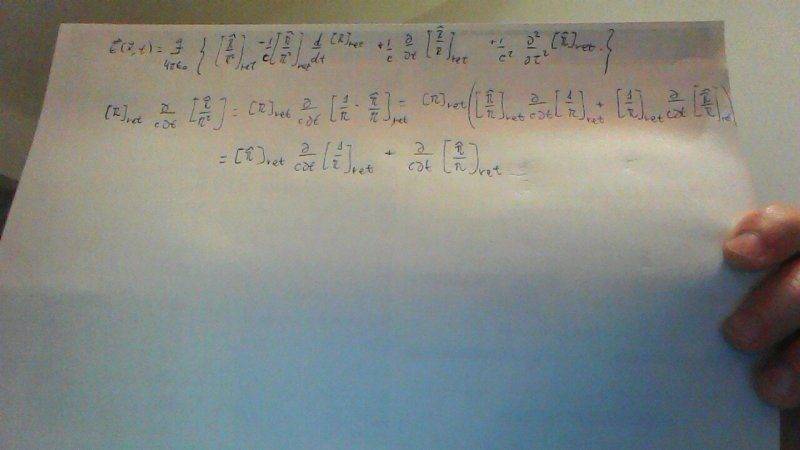 E⃗(r⃗,t) = q/4πε₀ { [r̂/r²]ret - 1/c [r̂/r²]ret d/dt [r]ret + 1/c ∂/∂t [r̂/r]ret + 1/c² ∂²/∂t² [r̂]ret }
[r]ret ∂/c∂t [r̂/r²] = [r]ret ∂/c∂t [1/r · r̂/r]ret = [r]ret ([r̂/r]ret ∂/c∂t [1/r]ret + [1/r]ret ∂/c∂t [r̂/r]ret)
= [r̂]ret ∂/c∂t [1/r]ret + ∂/c∂t [r̂/r]ret